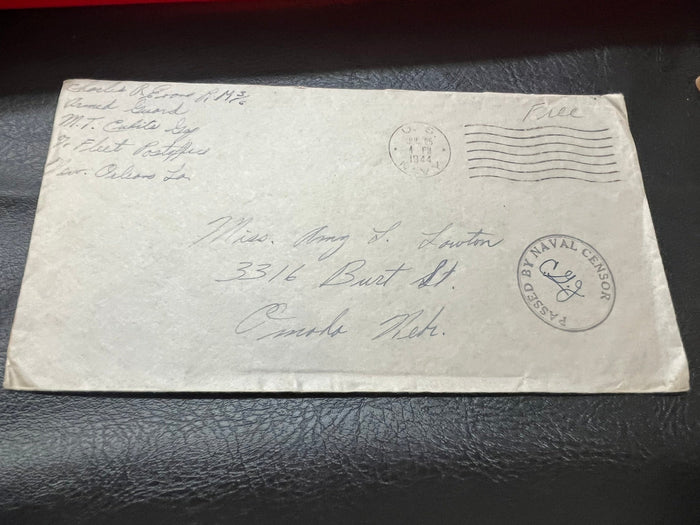 Charles R Evans R M 3/c
Armed Guard
M.T. Cubits Gap
℅ Fleet Postoffice
New Orleans La.
Free
U.S.
4 PM
1944
NAVY
Miss. Amy L. Lawton
3316 Burt St.
Omaha Nebr.
PASSED BY NAVAL CENSOR